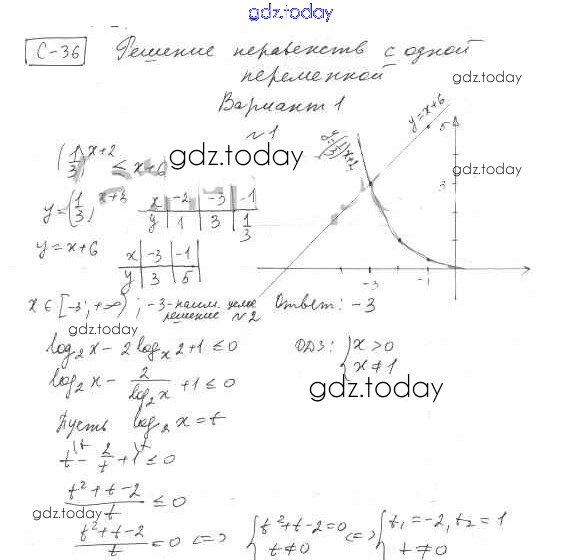 gdz.today
С-36 Решение неравенств с одной
переменной
gdz.today
Вариант 1
№1
(1/3)^x+2 ≤ x+6
gdz.today
y=(1/3)^x+3
x -2 -3 -1
y 1 3 1/3
y = x+6
x -3 -1
y 3 5
y=x+6
5
3
-3 -1
x ∈ [-3; +∞); -3 - наим. целое решение
Ответ: -3
gdz.today
№2
log₂x - 2logₓ2 + 1 ≤ 0
ОДЗ: { x > 0
x ≠ 1
log₂x - 2/log₂x + 1 ≤ 0
gdz.today
Пусть log₂x = t
t - 2/t + 1 ≤ 0
(t² + t - 2)/t ≤ 0
gdz.today
(t² + t - 2)/t = 0 <=> { t² + t - 2 = 0 <=> { t₁ = -2, t₂ = 1
t ≠ 0 t ≠ 0